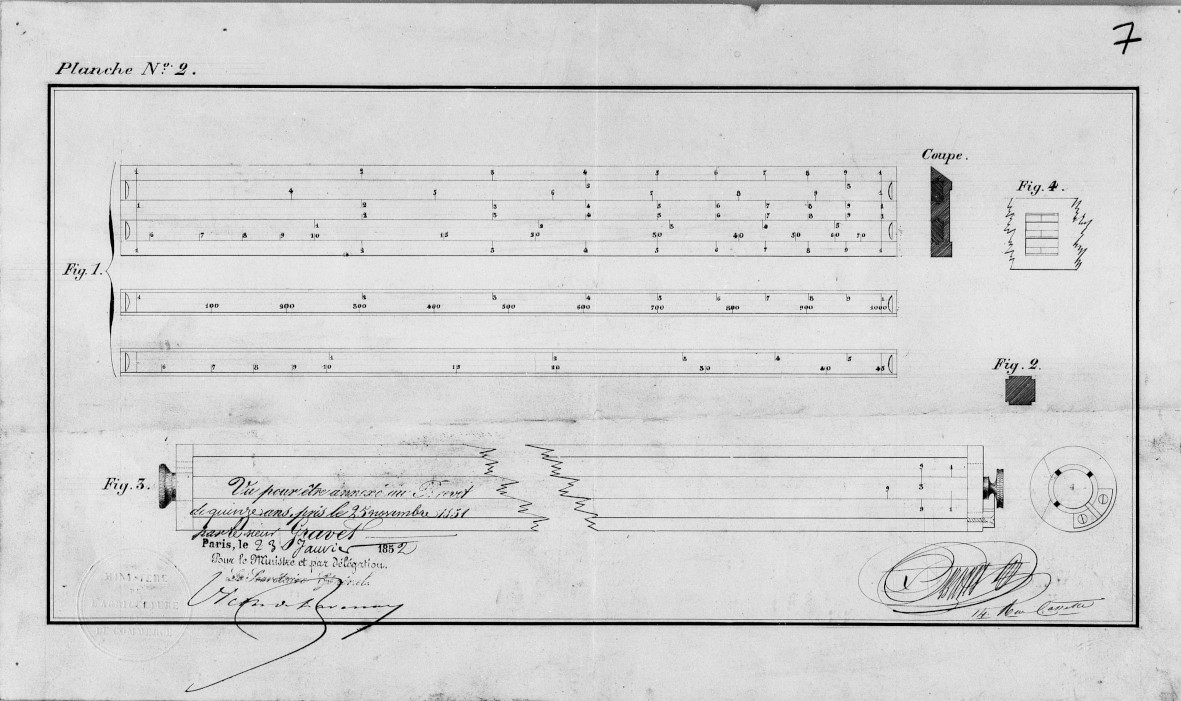 7
Planche Nº 2.
Coupe.
Fig. 4.
1 2 3 4 5 6 7 8 9 1
3 5
4 5 6 7 8 9
1 2 3 4 5 6 7 8 9 1
2 3 4 5 6 7 8 9 1
1 2 3 4 5
6 7 8 9 10 15 20 30 40 50 60 70
1 2 3 4 5 6 7 8 9 1
Fig. 1.
1 2 3 4 5 6 7 8 9 1
100 200 300 400 500 600 700 800 900 1000
1 2 3 4 5
6 7 8 9 10 15 20 30 40 45
Fig. 2.
Fig. 3.
2 1
2 3 1
3 1
Vu pour être annexé au Brevet
de quinze ans, pris le 25 novembre 1851
par le sieur Gravet
Paris, le 23 Janvier 1852
Pour le Ministre et par délégation.
MINISTERE
DE
L'AGRICULTURE
ET
DU COMMERCE
14, Rue Cassette